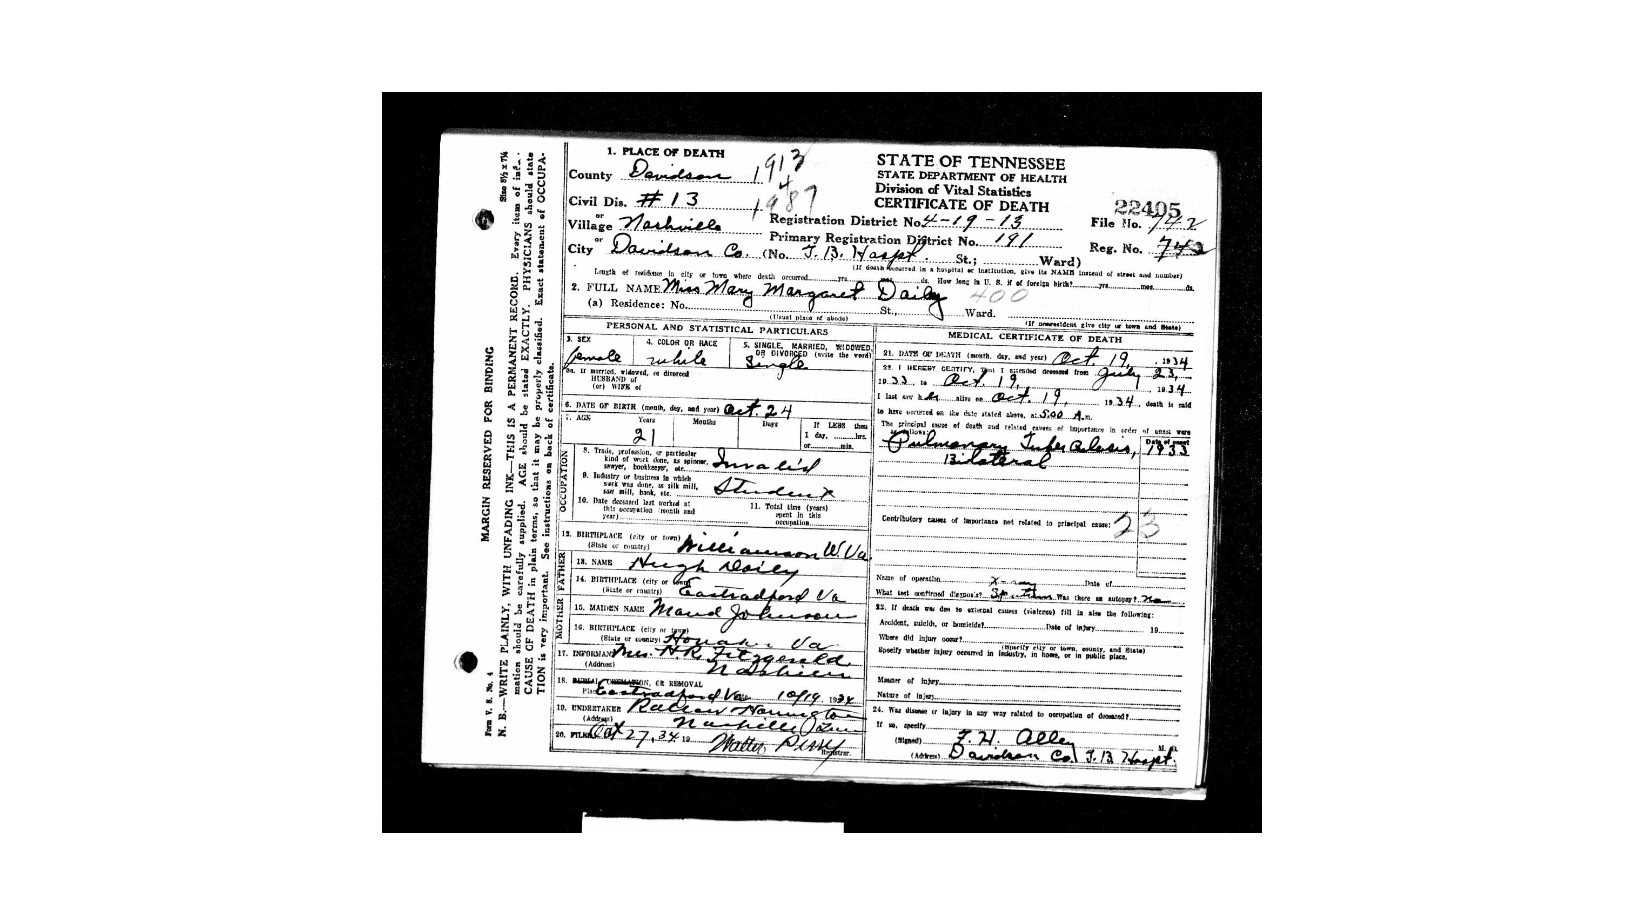 1. PLACE OF DEATH
County Davidson 1913
Civil Dis. # 13
or
Village Nashville
or
City Davidson Co. (No. T. B. Hospt. St.; Ward)
(If death occurred in a hospital or institution, give its NAME instead of street and number)
STATE OF TENNESSEE
STATE DEPARTMENT OF HEALTH
Division of Vital Statistics
CERTIFICATE OF DEATH
Registration District No. 4-19-13
Primary Registration District No. 191
22405
File No. 742
Reg. No. 742
Length of residence in city or town where death occurred yrs. mos. ds. How long in U. S. if of foreign birth? yrs. mos. ds.
2. FULL NAME Miss Mary Margaret Daily 400
(a) Residence: No. St., Ward.
(Usual place of abode) (If nonresident give city or town and State)
PERSONAL AND STATISTICAL PARTICULARS
3. SEX
female
4. COLOR OR RACE
white
5. SINGLE, MARRIED, WIDOWED,
OR DIVORCED (write the word)
Single
5a. If married, widowed, or divorced
HUSBAND of
(or) WIFE of
6. DATE OF BIRTH (month, day, and year) Oct. 24
7. AGE Years Months Days If LESS than
21 1 day, hrs.
or min.
OCCUPATION
8. Trade, profession, or particular
kind of work done, as spinner,
sawyer, bookkeeper, etc. Invalid
9. Industry or business in which
work was done, as silk mill,
saw mill, bank, etc. Student
10. Date deceased last worked at
this occupation (month and
year)
11. Total time (years)
spent in this
occupation
12. BIRTHPLACE (city or town)
(State or country) Williamson W. Va
FATHER
13. NAME Hugh Daily
14. BIRTHPLACE (city or town)
(State or country) Eastradford Va
MOTHER
15. MAIDEN NAME Maud Johnson
16. BIRTHPLACE (city or town)
(State or country) Honaker Va
17. INFORMANT Mrs. H. R. Fitzgerald
(Address) Nashville
18. BURIAL, CREMATION, OR REMOVAL
Place Eastradford Va 10/19 1934
19. UNDERTAKER
(Address) Nashville Tenn
20. FILED Oct 27, 34 19 Walter
Registrar.
MEDICAL CERTIFICATE OF DEATH
21. DATE OF DEATH (month, day, and year) Oct 19, 1934
22. I HEREBY CERTIFY, That I attended deceased from July 23,
1933, to Oct. 19, 1934
I last saw her alive on Oct. 19, 1934, death is said
to have occurred on the date stated above, at 5:00 A. m.
The principal cause of death and related causes of importance in order of onset were
as follows: Date of onset
Pulmonary Tuberculosis, 1933
Bilateral
Contributory causes of importance not related to principal cause: 23
Name of operation Date of
What test confirmed diagnosis? X-ray Sputum Was there an autopsy? No
23. If death was due to external causes (violence) fill in also the following:
Accident, suicide, or homicide? Date of injury 19
Where did injury occur?
(Specify city or town, county, and State)
Specify whether injury occurred in industry, in home, or in public place.
Manner of injury
Nature of injury
24. Was disease or injury in any way related to occupation of deceased?
If so, specify
(Signed) F. H. Alley M. D.
(Address) Davidson Co. T. B. Hospt.
Form V. S. No. 4 MARGIN RESERVED FOR BINDING Size 8½ x 7¼
N. B.—WRITE PLAINLY, WITH UNFADING INK—THIS IS A PERMANENT RECORD. Every item of infor-
mation should be carefully supplied. AGE should be stated EXACTLY. PHYSICIANS should state
CAUSE OF DEATH in plain terms, so that it may be properly classified. Exact statement of OCCUPA-
TION is very important. See instructions on back of certificate.